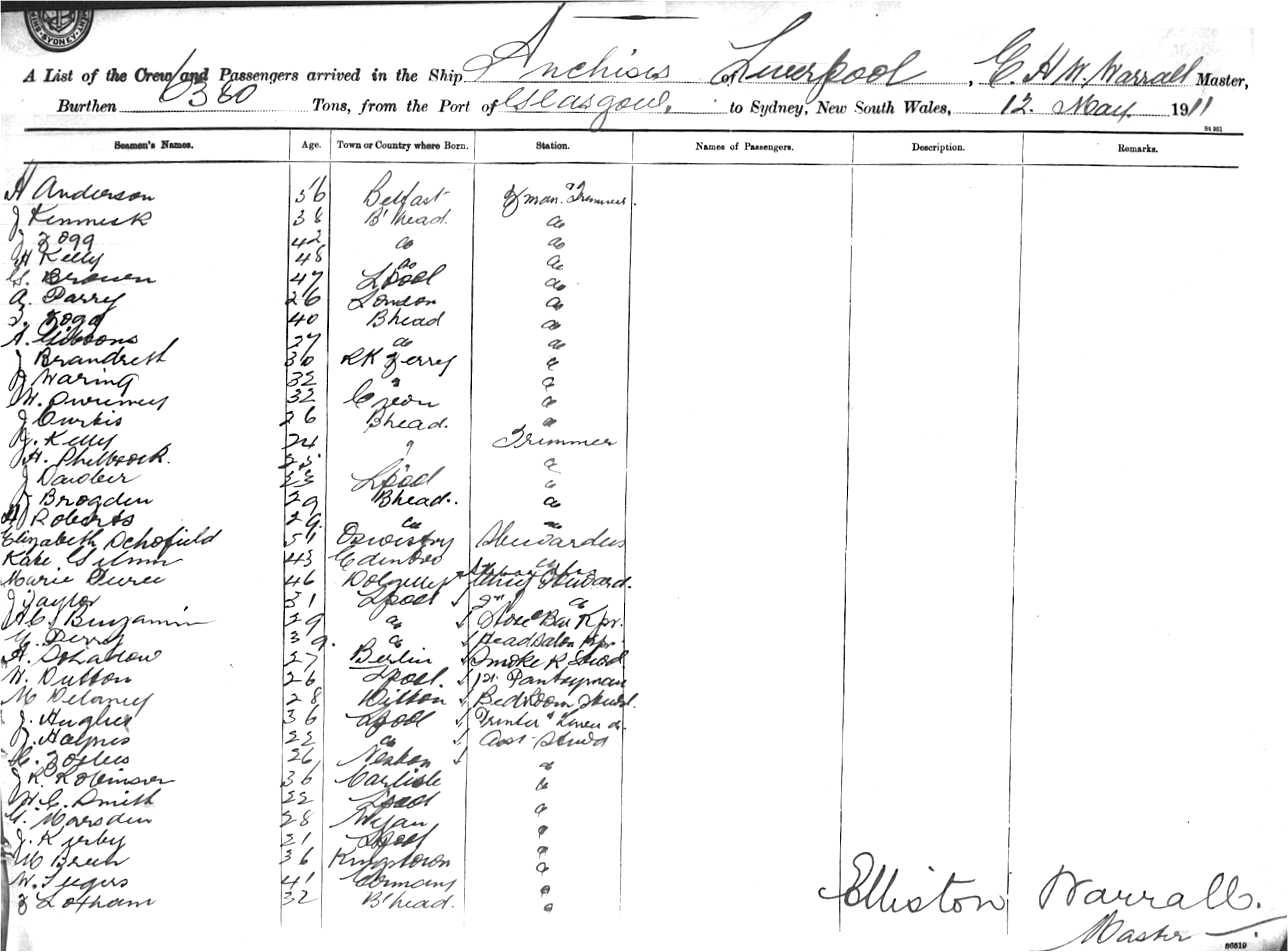 SYDNEY
A List of the Crew and Passengers arrived in the Ship Anchises of Liverpool, C. H. W. Warrall Master,
Burthen 6380 Tons, from the Port of Glasgow, to Sydney, New South Wales, 12. May. 1911
Seamen's Names. Age. Town or Country where Born. Station. Names of Passengers. Description. Remarks.
H Anderson 36 Belfast Trimmer.
J 38 B'head. do
J Fogg 42 do do
H Kelly 48 do do
G. Brown 47 Lpool do
A. Parry 26 London do
Fogg 40 Bhead do
A. Gibbons 27 do do
J Brandreth 30 RK Ferry "
J Waring 32 " "
W. 32 "
J Curtis 26 Bhead. "
J. Kelly 24 " Trimmer
H. Philcock. 25 " "
J Dawber 23 Lpool "
J Brogden 29 Bhead. do
Roberts 29. do
Elizabeth Schofield 51 Oswestry Stewardess
Kate 43 Edinbro do
Marie 46 Dolgelley Chief Steward.
J Taylor 31 Lpool 2nd do
H C J Benjamin 29 do Bar Kpr.
Perry 39. do Head Salon Kpr.
A. Schadow 27 Berlin Smoke R. Stwd
W. Dutton 26 Lpool. 1st. Pantryman
M Delaney 28 Bedroom Stwd.
J. Hughes 36 Lpool Printer & Linen do.
J. Haynes 22 do Asst. Stwd
26 Neston do
J R. Robinson 36 Carlisle do
W. C. Smith 22 Lpool do
G. Marsden 28 Wigan "
J. Kirby 21 Lpool "
36 Kingstown do
W. 41 Germany "
F Lotham 32 B'head. "
Elliston Warrall.
Master